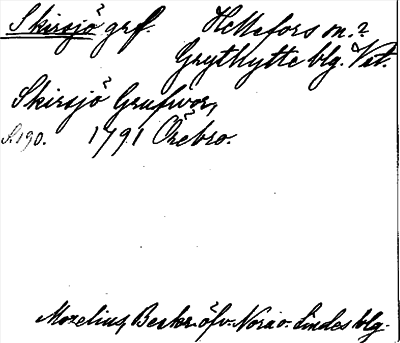 Skirsjö grf. Hellefors sn.?
Grythytte blg. Vstl.
Skirsjö Grufvor,
S.190. 1791 Örebro.
Mozelius, Beskr. öfv. Nora o. Lindes blg.